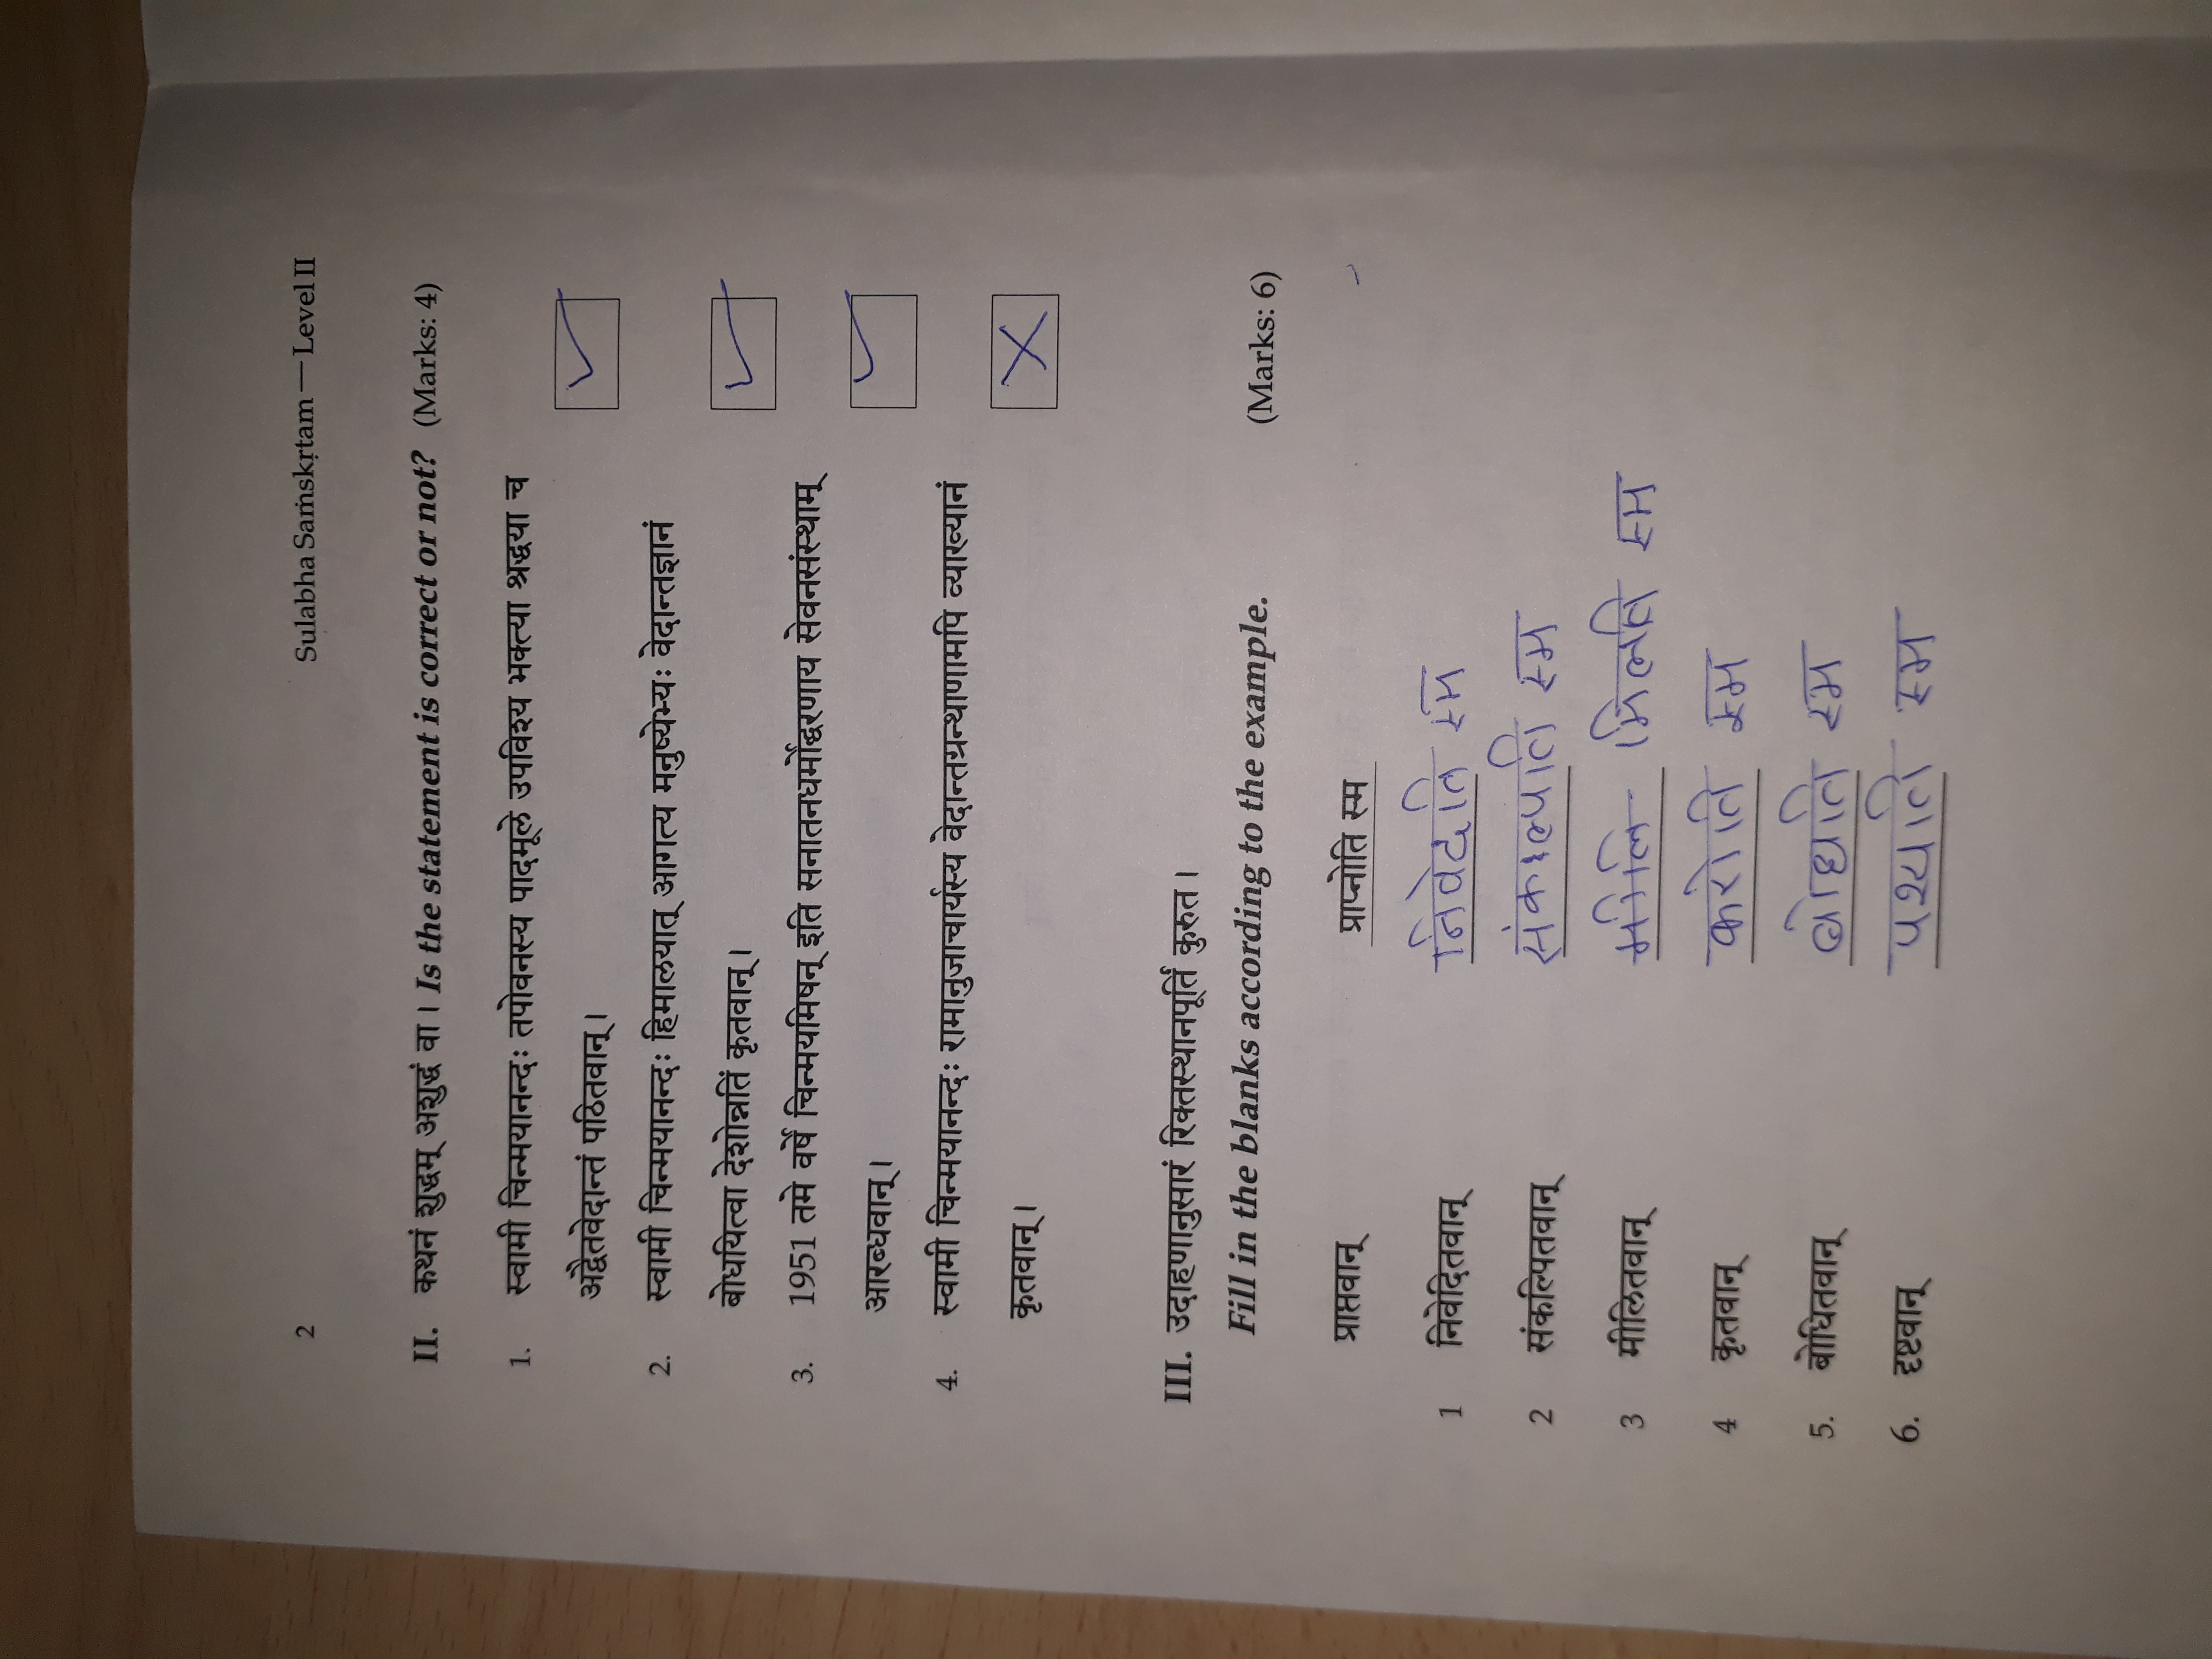 2 Sulabha Saṁskṛtam — Level II
II. कथनं शुद्धम् अशुद्धं वा । Is the statement is correct or not? (Marks: 4)
1. स्वामी चिन्मयानन्दः तपोवनस्य पादमूले उपविश्य भक्त्या श्रद्धया च
अद्वैतवेदान्तं पठितवान् । ✓
2. स्वामी चिन्मयानन्दः हिमालयात् आगत्य मनुष्येभ्यः वेदान्तज्ञानं
बोधयित्वा देशोन्नतिं कृतवान् । ✓
3. 1951 तमे वर्षे चिन्मयमिषन् इति सनातनधर्मोद्धरणाय सेवनसंस्थाम्
आरब्धवान् । ✓
4. स्वामी चिन्मयानन्दः रामानुजाचार्यस्य वेदान्तग्रन्थाणामपि व्याख्यानं
कृतवान् । X
III. उदाहणानुसारं रिक्तस्थानपूर्तिं कुरुत ।
Fill in the blanks according to the example. (Marks: 6)
प्राप्तवान् प्राप्नोति स्म
1 निवेदितवान् निवेदति स्म
2 संकल्पितवान् संकल्पति स्म
3 मीलितवान् मीलि मिलति स्म
4 कृतवान् करोति स्म
5. बोधितवान् बोधति स्म
6. दृष्टवान् पश्यति स्म